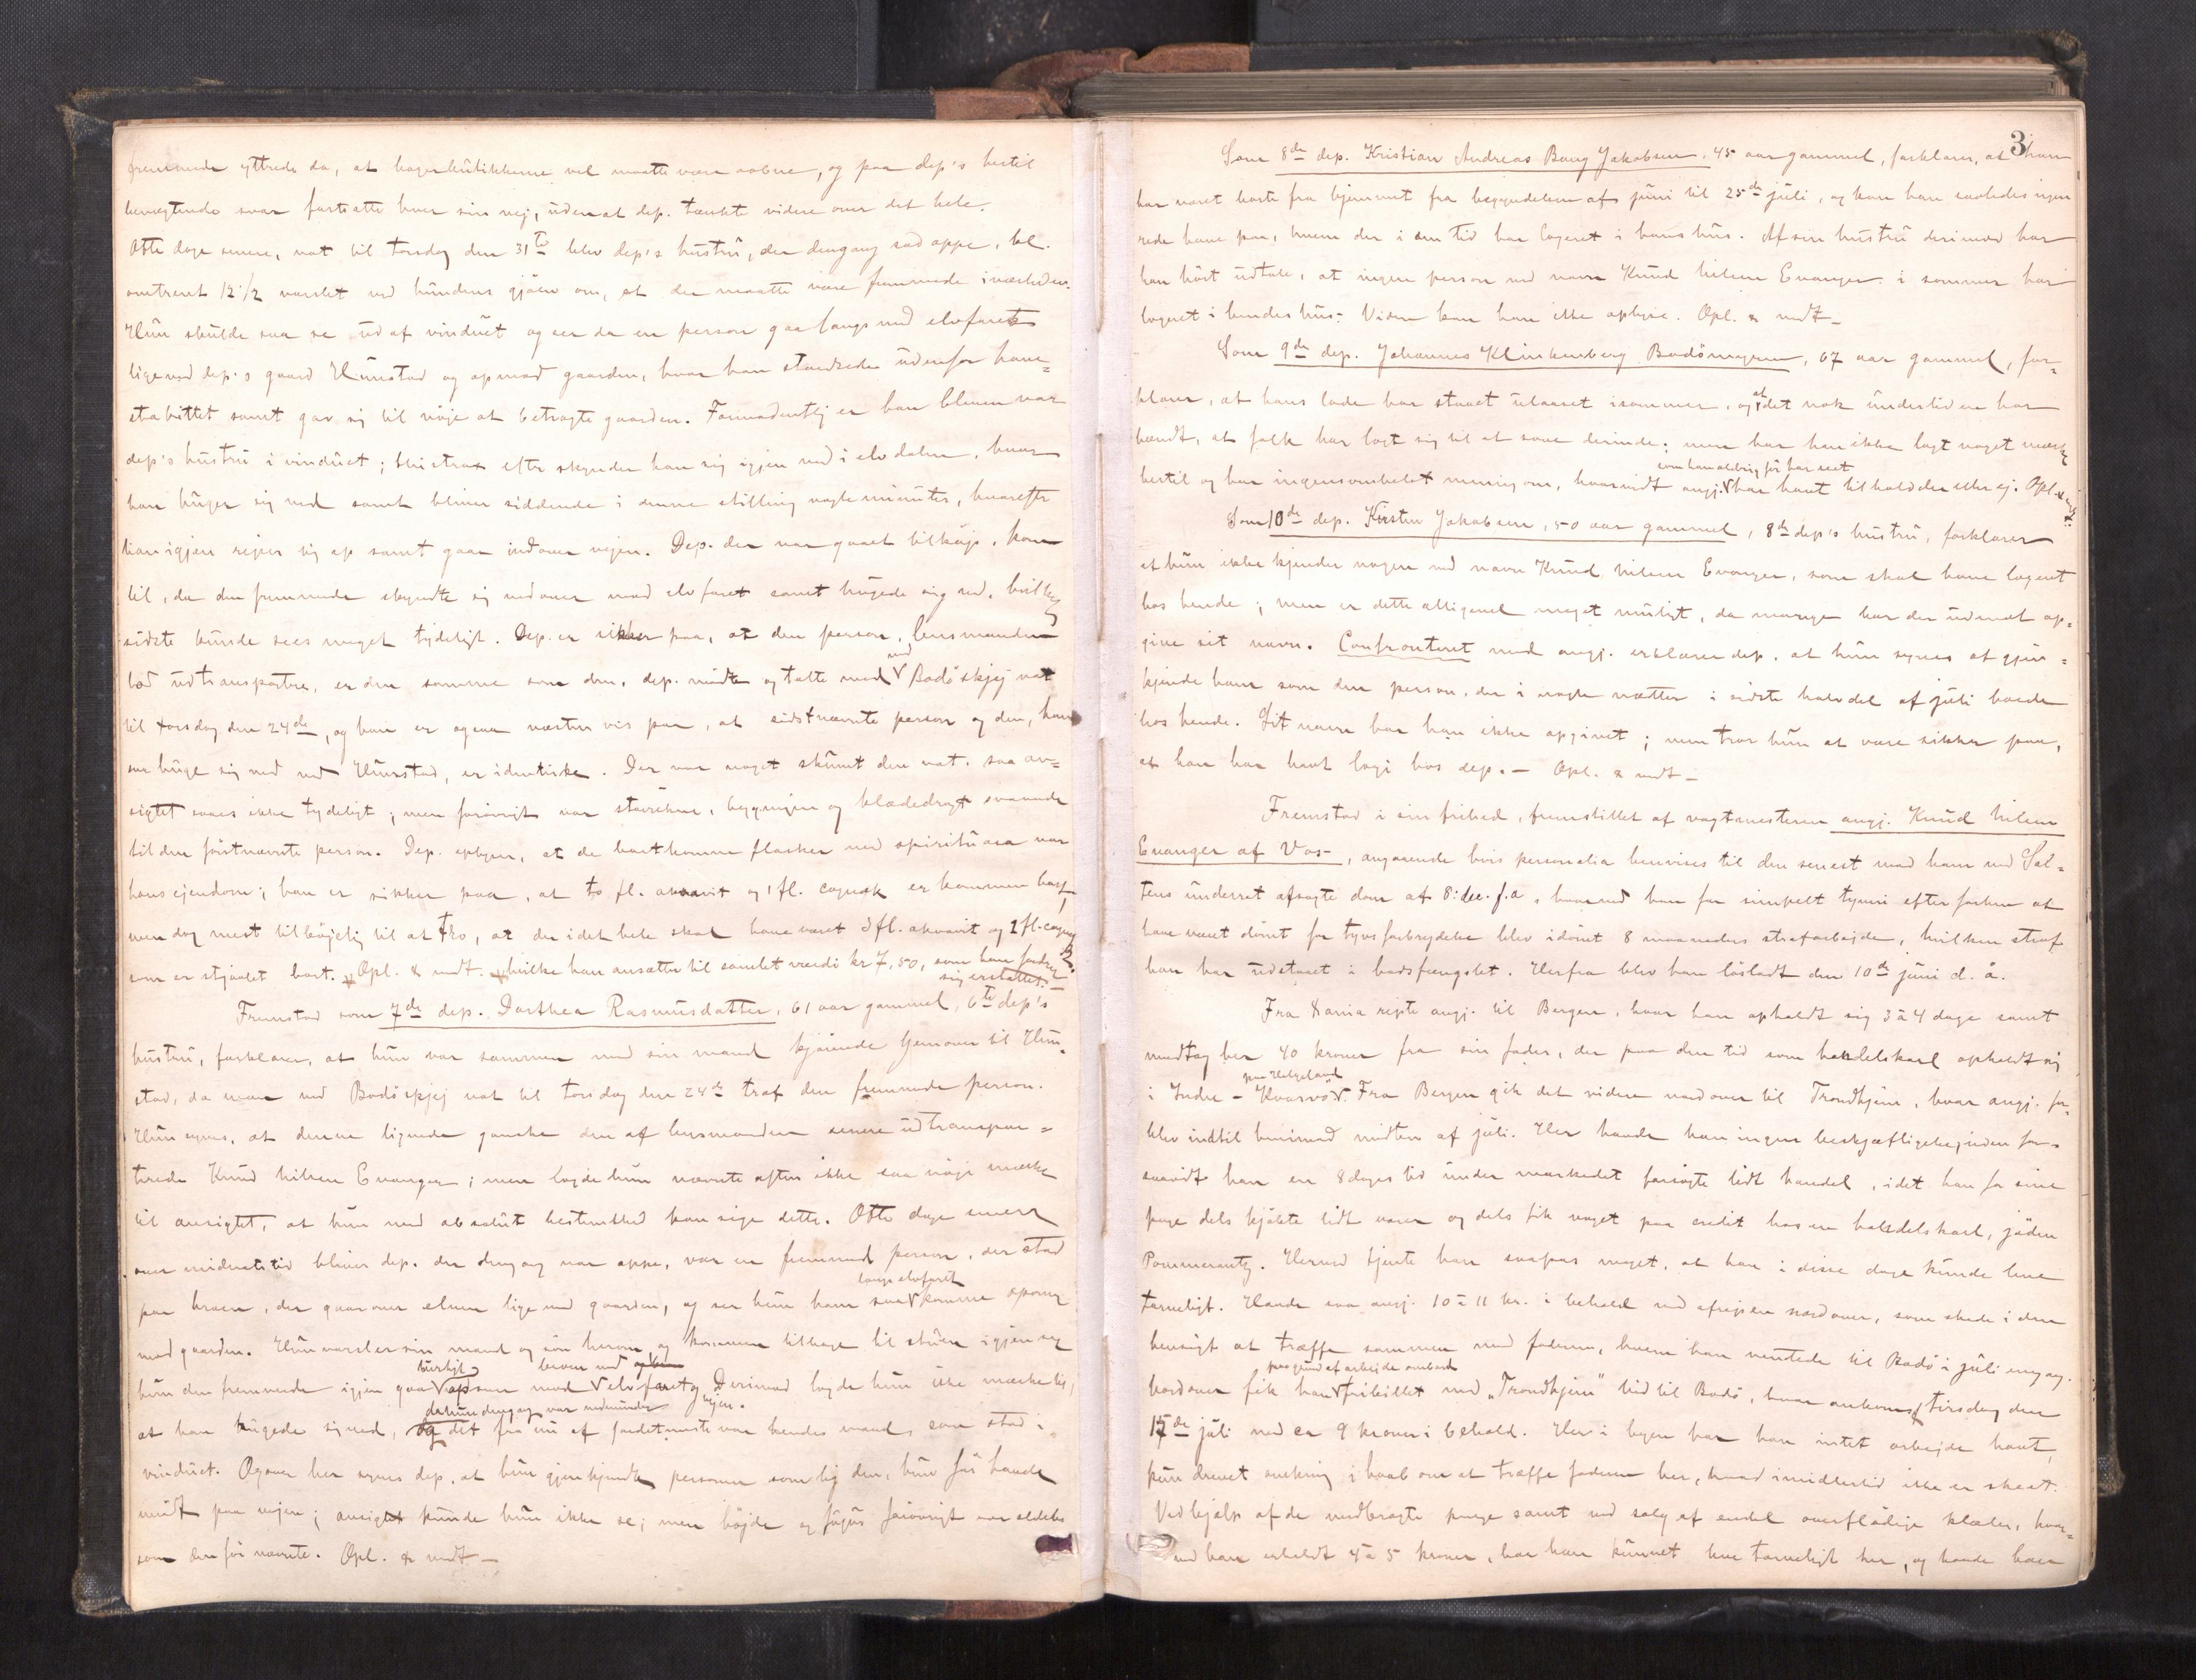 fremmede yttrede da, at bagerbutikkerne vel maatte være aabne, og paa dep's hertil
benægtende svar fortsatte hver sin vej, uden at dep. tænkte videre over det hele.
Otte dage senere, nat til torsdag den 31te blev dep's hustru, der dengang sad oppe, kl.
omtrent 12 1/2 varslet ved hundens gjøen om, at der maatte være fremmede i nærheden.
Hun skulde saa se ud af vinduet og ser da en person gaa langs med elvfaret
lige ved dep's gaard Hunstad og opmod gaarden, hvor han standsede udenfor have-
stakittet samt gav sig til nøje at betragte gaarden. Formodentlig er han bleven var
dep's hustru i vinduet; thi strax efter skynder han sig igjen ned i elvdalen, hvor
han huger sig ned samt bliver siddende i denne stilling nogle minuter, hvorefter
han igjen rejser sig op samt gaar indover vejen. Dep. der var gaaet tilkøjs, kom
til, da den fremmede skyndte sig nedover mod elvfaret samt hugede sig ned, hvilket
sidste kunde sees meget tydeligt. Dep. er sikker paa, at den person, lensmanden
lod udtransportere, er den samme som den, dep. mødte og talte med ved Bodøskjej nat
til torsdag den 24de, og han er ogsaa næsten vis paa, at sidstnævnte person og den, han
saa huge sig ned ved Hunstad, er identiske. Der var noget skumt den nat, saa an-
sigtet saaes ikke tydeligt; men forøvrigt var størrelsen, bygningen og klædedragt svarende
til den førstnævnte person. Dep. oplyser, at de bortkomne flasker med spirituosa var
hans ejendom; han er sikker paa, at to fl. akvavit og 1 fl. cognak er kommen bort,
men dog mest tilbøjelig til at tro, at der i det hele skal have været 3 fl. akvavit og 2 fl. cognak,
som er stjaalet bort. Opl. & vedt. hvilke han ansætter til samlet værdi kr 7,50, som han fordrer
sig erstattet.
Fremstod som 7de dep. Dorthea Rasmusdatter, 61 aar gammel, 6te dep's
hustru, forklarer, at hun var sammen med sin mand kjørende hjemover til Hun-
stad, da man ved Bodøskjej nat til torsdag den 24de traf den fremmede person.
Hun synes, at denne lignede ganske den af lensmanden senere udtranspor-
terede Knud Nilsen Evanger; men lagde hun nævnte aften ikke saa nøje mærke
til ansigtet, at hun med absolut bestemthed kan sige dette. Otte dage senere
over midnatstid bliver dep. der dengang var oppe, var en fremmed person, der stod
langs elvfaret
paa broen, der gaar over elven lige ved gaarden, og ser hun ham saa komme opover
mod gaarden. Hun varsler sin mand og søn herom og kommer tilbage til stuen igjen saa
hurtigt
hun den fremmede igjen gaa ned mod elvfaret. Derimod lagde hun ikke mærke til,
da hun dengang var nedunder
at han hugede sig ned, og det
vinduet. Ogsaa her synes dep. at hun gjenkjendte personen som lig den, hun før havde
mødt paa vejen; ansigtet kunde hun ikke se; men højde og figur forøvrigt var aldeles
som den før nævnte. Opl. & vedt –
3
Som 8de dep. Kristian Andreas Bang Jakobsen, 45 aar gammel, forklarer, at han
har været borte fra hjemmet fra begyndelsen af juni til 25de juli, og kan han saaledes ingen
rede have paa, hvem der i den tid har logeret i hans hus. Af sin hustru derimod har
han hørt udtale, at ingen person ved navn Knud Nilsen Evanger i sommer har
logeret i hendes hus. Videre kan han ikke oplyse. Opl. & vedt –
Som 9de dep. Johannes Klinkenberg Bodømagsen, 67 aar gammel, for-
klarer, at hans lade har staaet ulaaset i sommer, og at det nok undertiden har
hændt, at folk har lagt sig til at sove derinde; men har han ikke lagt noget mærke
som han aldrig før har seet
hertil og har ingensomhelst mening om, hvorvidt angj. har havt tilhold der eller ej. Opl. & vedt.
Som 10de dep. Kirsten Jakobsen, 50 aar gammel, 8de dep's hustru, forklarer
at hun ikke kjender nogen ved navn Knud Nilsen Evanger, som skal have logeret
hos hende; men er dette alligevel meget muligt, da mange har der uden at op-
give sit navn. Confronteret med angj. erklærer dep. at hun synes at gjen-
kjende ham som den person, der i nogle nætter i sidste halvdel af juli boede
hos hende. Sit navn har han ikke opgivet; men tror hun at være sikker paa,
at han har havt logi hos dep. – Opl. & vedt –
Fremstod i sin frihed, fremstillet af vagtmesteren angj. Knud Nilsen
Evanger af Vos, angaaende hvis personalia henvises til den senest mod ham ved Sal-
tens underret afsagte dom af 8. dec. f.a, hvorved han for simpelt tyveri efter forhen at
have været dømt for tyvsforbrydelse blev idømt 8 maaneders strafarbejde, hvilken straf
han har udstaaet i bodsfængslet. Herfra blev han løsladt den 10de juni d. å.
Fra Xania rejste angj. til Bergen, hvor han opholdt sig 3 à 4 dage samt
modtog her 40 kroner fra sin fader, der paa den tid som handelskarl opholdt sig
paa Helgeland
i Indre-Kvarøv. Fra Bergen gik det videre nordover til Trondhjem, hvor angj. for-
blev indtil henimod midten af juli. Her havde han ingen beskjæftigelse, uden for-
saavidt han en 8 dages tid under markedet forsøgte lidt handel, idet han for sine
penge dels kjøbte lidt varer og dels fik noget paa credit hos en handelskarl, jøden
Pommerantz. Herved tjente han saapas meget, at han i disse dage kunde leve
tarveligt. Havde saa angj. 10 à 11 kr. i behold ved afrejsen nordover, som skede i den
hensigt at træffe sammen med faderen, hvem han ventede til Bodø i juli engang.
paa grund af arbejde ombord
Nordover fik han fribillet med „Trondhjem" hid til Bodø, hvor ankomst tirsdag den
15de juli med ca 9 kroner i behold. Her i byen har han intet arbejde havt,
kun drevet omkring i haab om at træffe faderen her, hvad imidlertid ikke er skeet.
Ved hjælp af de medbragte penge samt ved salg af endel overflødige klæder, hvor-
ved han erholdt 4 à 5 kroner, har han kunnet leve tarveligt her, og havde han